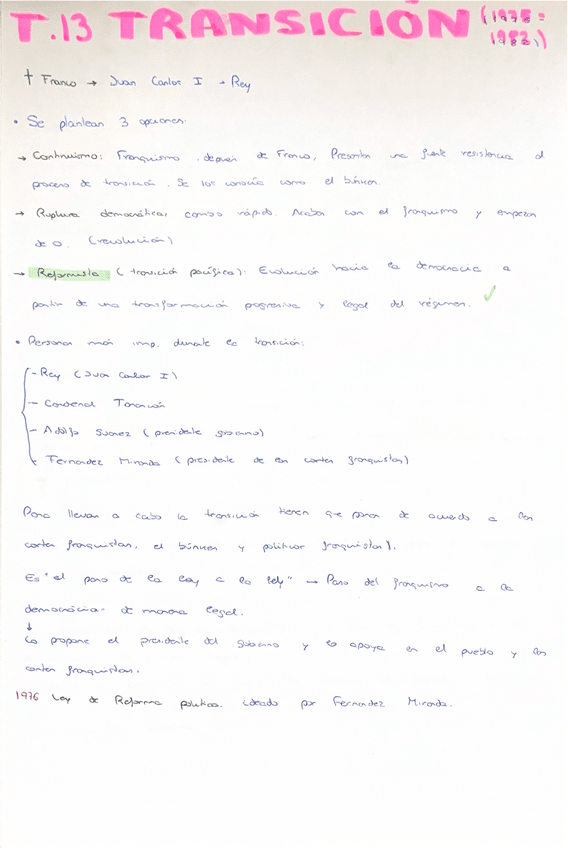 T.13 TRANSICIÓN (1975-
1982)
† Franco → Juan Carlos I → Rey
• Se plantean 3 opciones:
→ Continuismo: Franquismo después de Franco. Presentan una fuerte resistencia al
proceso de transición. Se los conocía como el búnker.
→ Ruptura democrática: cambio rápido. Acabar con el franquismo y empezar
de 0. (revolución)
→ Reformista (transición pacífica): Evolución hacia la democracia a
partir de una transformación progresiva y legal del régimen. ✓
• Personas más imp. durante la transición:
- Rey (Juan Carlos I)
- Cardenal Tarancón
- Adolfo Suarez (presidente gobierno)
- Fernandez Miranda (presidente de las cortes franquistas)
Para llevar a cabo la transición tienen que poner de acuerdo a las
cortes franquistas, el búnker y políticos franquistas).
Es "el paso de la ley a la ley" → Paso del franquismo a la
democracia de manera legal.
↓
Lo propone el presidente del gobierno y se apoya en el pueblo y las
cortes franquistas.
1976 Ley de Reforma política. ideado por Fernandez Miranda.